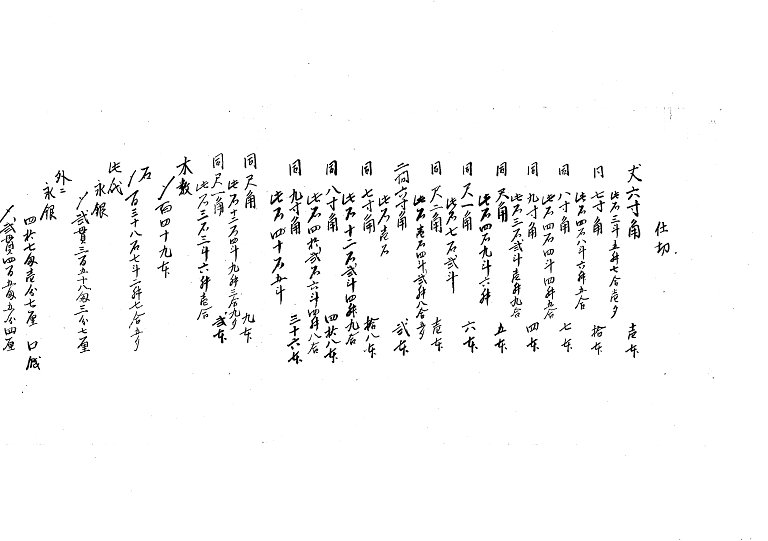 仕切
丈六寸角 壱本
此石三斗五升七合壱夕
同七寸角 拾本
此石四石八斗六升五合
同八寸角 七本
此石四石四斗四升五合
同九寸角 四本
此石三石弐斗壱升九合
同尺角 五本
此石四石九斗六升
同尺一角 六本
此石七石弐斗
同尺二角 壱本
此石壱石四斗弐升八合五夕
二間六寸角 弐本
此石壱石
同七寸角 拾八本
此石十二石弐斗四升九合
同八寸角 四拾八本
此石四拾弐石六斗四升八合
同九寸角 三十六本
此石四十石五斗
同尺角 九本
此石十二石四斗九升三合九夕
同尺一角 弐本
此石三石三斗六升壱合
木数
〆百四十九本
石
〆百三十八石七斗二升七合五夕
此代
永銀
〆弐貫三百五十八匁三分七厘
外ニ
永銀
四拾七匁壱分七厘 口銭
〆弐貫四百五匁五分四厘